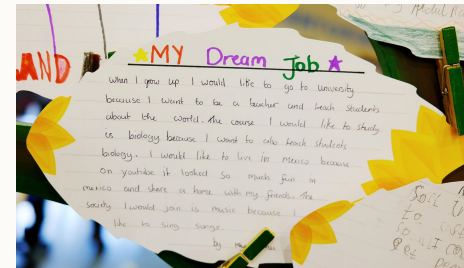 LAND
MY Dream Job
When I grow up I would like to go to university
because I want to be a teacher and teach students
about the world. The course I would like to study
is biology because I want to also teach students
biology. I would like to live in mexico because
on youtube it looked so much fun in
mexico and share a home with my friends. The
society I would join is music because I
like to sing songs.
by